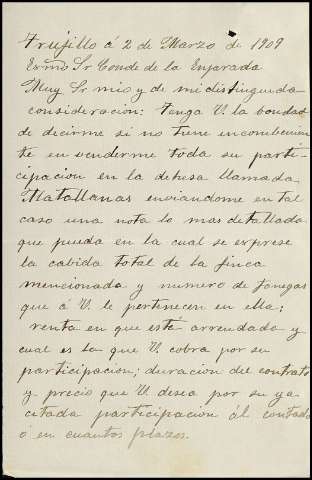 Trujillo á 2 de Marzo de 1909
Exmo Sr Conde de la Enjarada
Muy Sr mio y de mi distinguida
consideración: Tenga V. la bondad
de decirme si no tiene incombenien
te en venderme toda su parti-
cipacion en la dehesa llamada
Matallanas enviandome en tal
caso una nota lo mas detallada
que pueda en la cual se exprese
la cabida total de la finca
mencionada y numero de fanegas
que á V. le pertenecen en ella;
renta en que está arrendada y
cual es la que V. cobra por su
participacion; duración del contrato
y precio que V. desea por su ya
citada participación ál contado
ó en cuantos plazos.